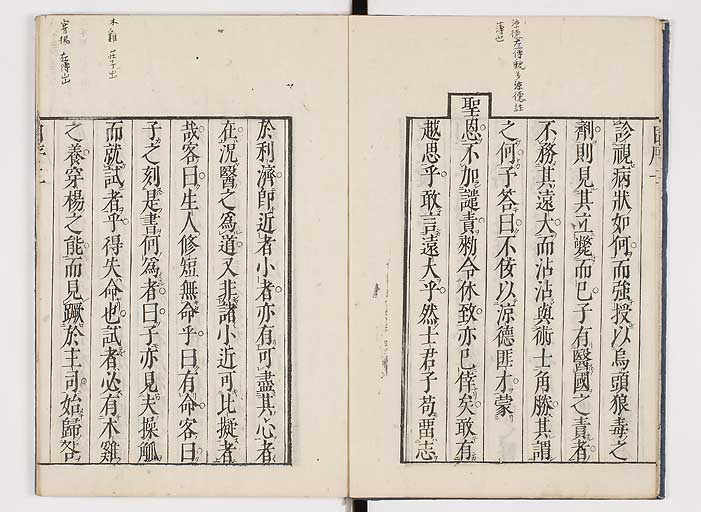 涼德左傳虢多涼德註
薄也
診視病狀如何而強授以烏頭狼毒之
劑則見其立斃而已子有醫國之責者
不務其遠大而沾沾與術士角勝其謂
之何予答曰不佞以涼德匪才蒙
聖恩不加譴責勑令休致亦已倖矣敢有
越思乎敢言遠大乎然士君子苟畱志
木雞 莊子出
穿楊 左傳出
於利濟即近者小者亦有可盡其心者
在況醫之為道又非諸小近可比擬者
哉客曰生人修短無命乎曰有命客曰
子之刻是書何為者曰子亦見夫操觚
而就試者乎得失命也試者必有木雞
之養穿楊之能而見蹶於主司始歸咎